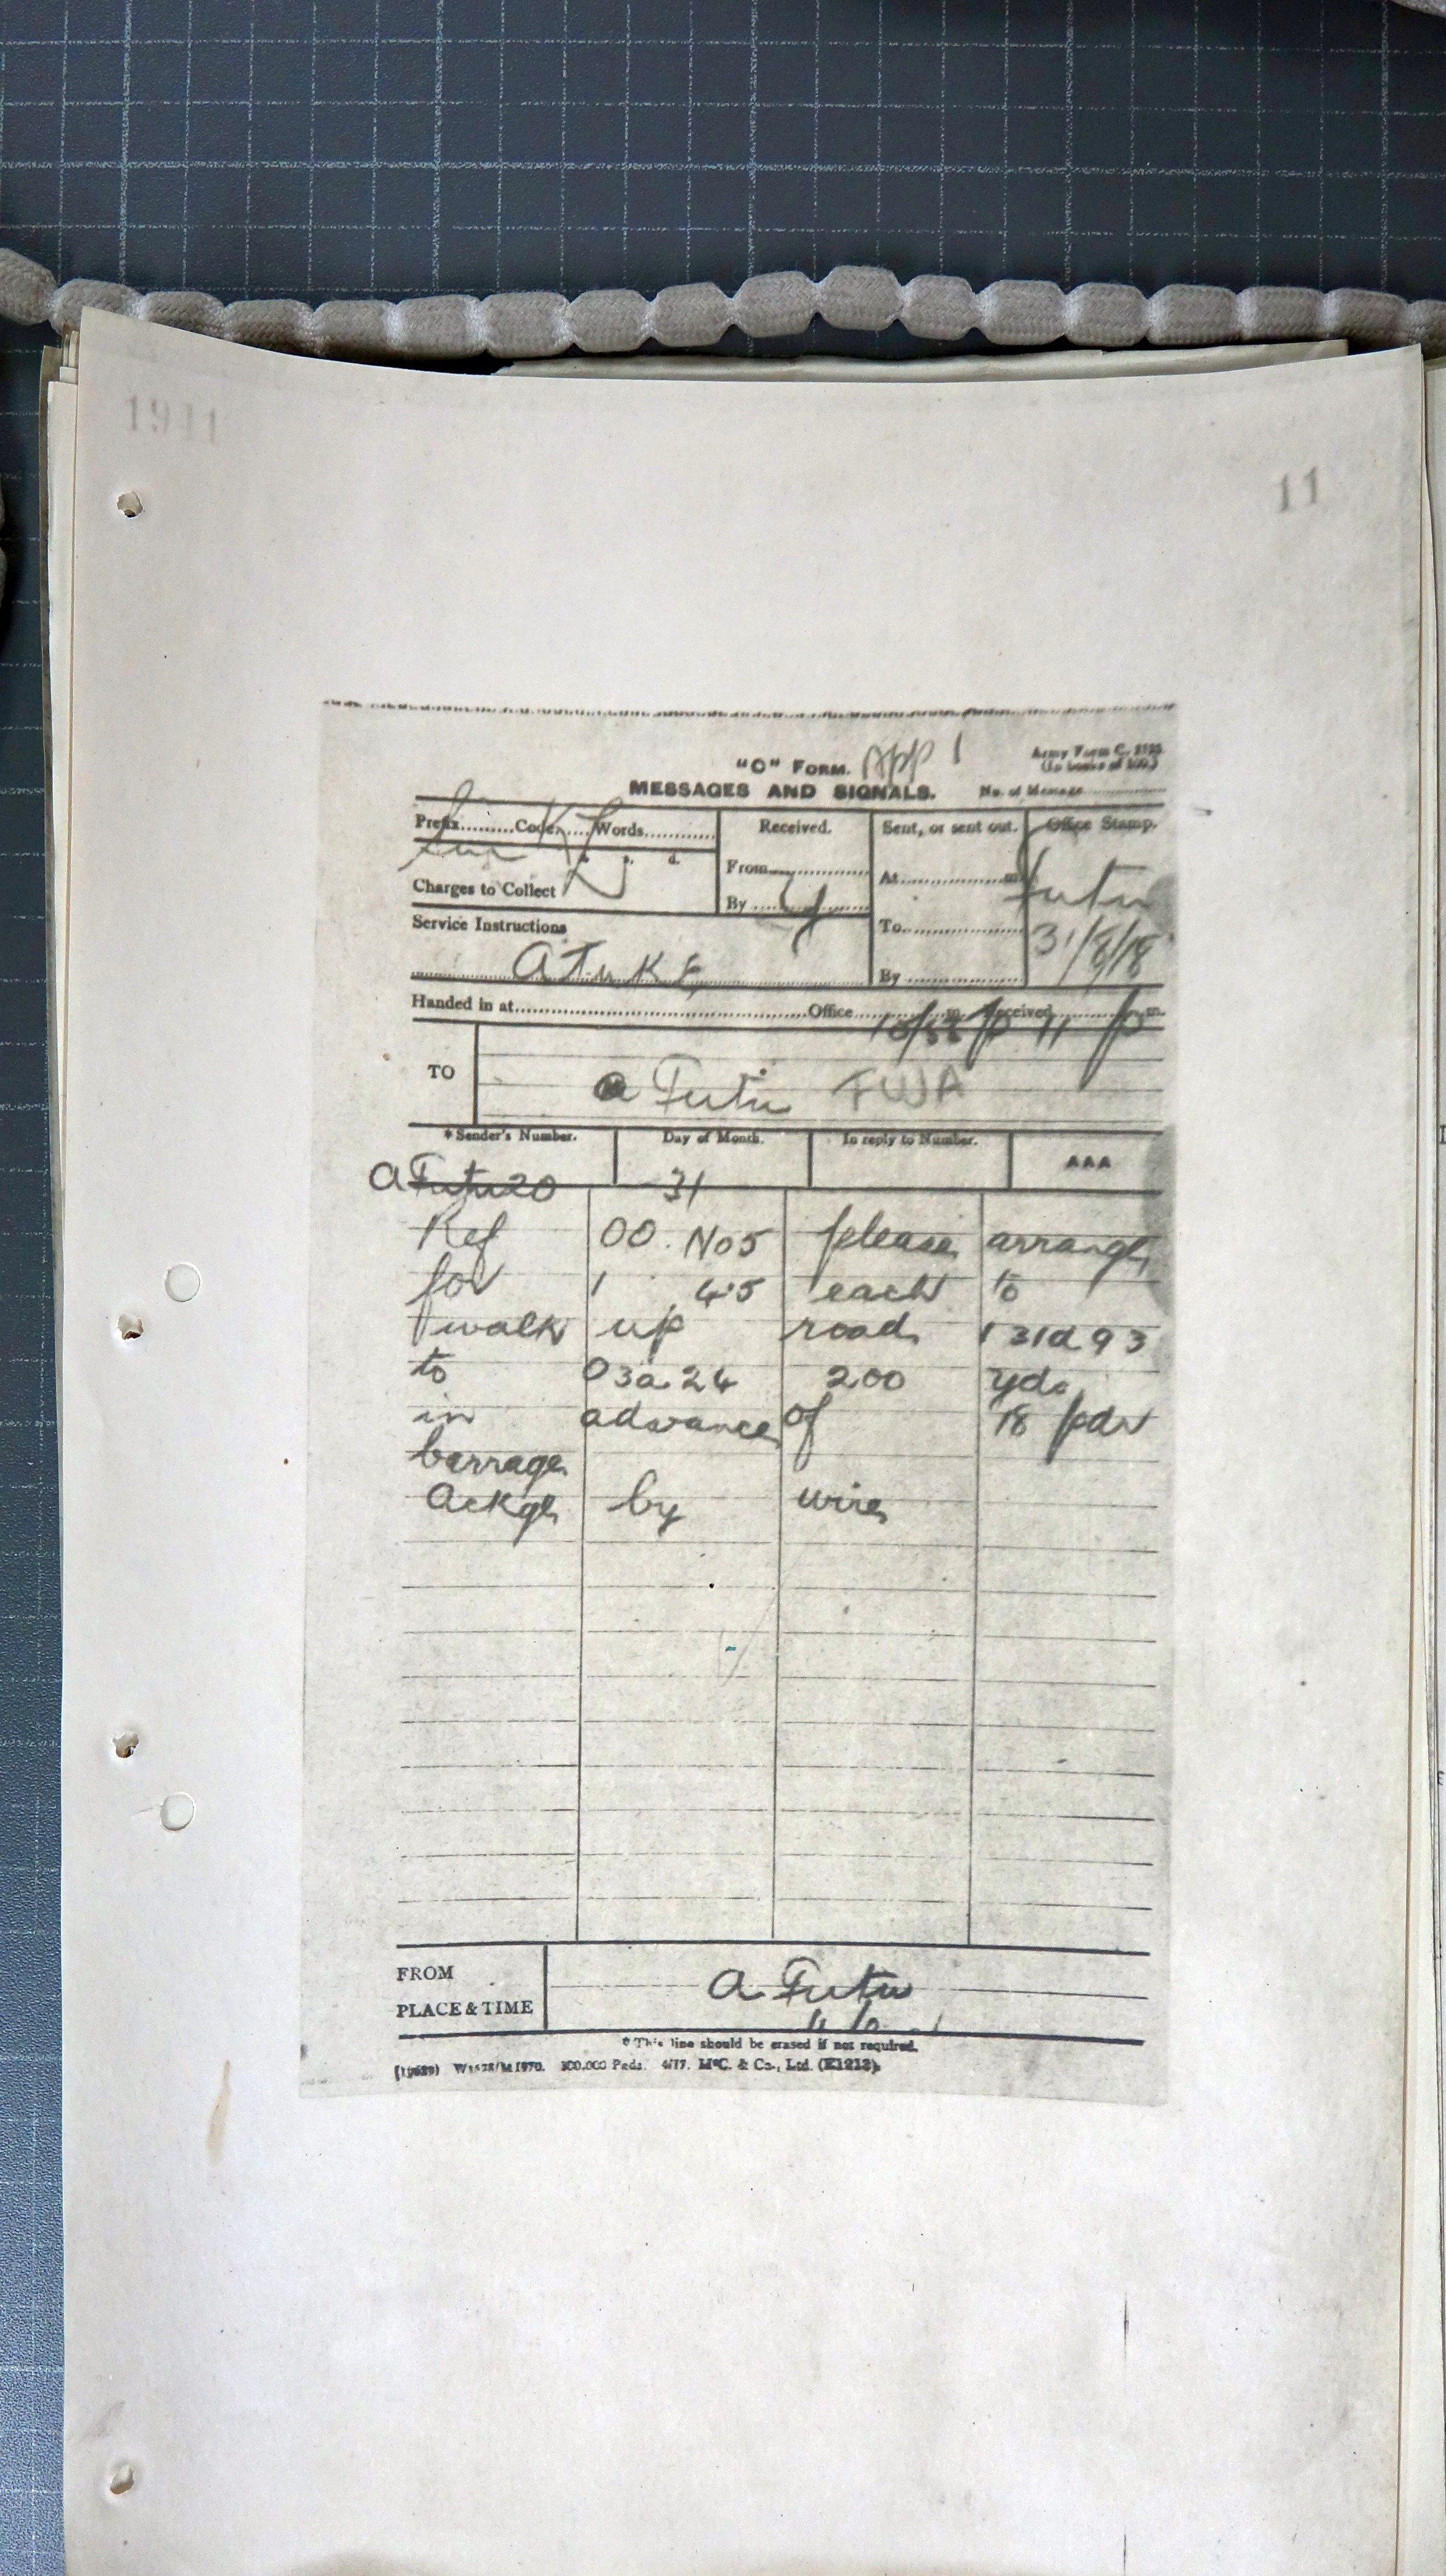 1941
11
"C" FORM. App 1
Army Form C. 2123
(In books of 100.)
MESSAGES AND SIGNALS. No. of Message
Prefix Code Words
Received.
Sent, or sent out.
Office Stamp.
£ s. d.
Charges to Collect
From
By
At m.
To
By
Futu
31/8/18
Service Instructions
Handed in at Office m. Received 11 p m.
TO
a Futu FUJA
*Sender's Number. Day of Month. In reply to Number. AAA
A Futu 20 31
Ref OO. No5 please arrange
for 1 4.5 each to
walk up road 131d93
to 03a.24 200 yds
in advance of 18 pdr
barrage
Ackge by wire
FROM
PLACE & TIME
a Futu
*This line should be erased if not required.
300,000 Pads. 4/17. McC. & Co., Ltd. (E1213).